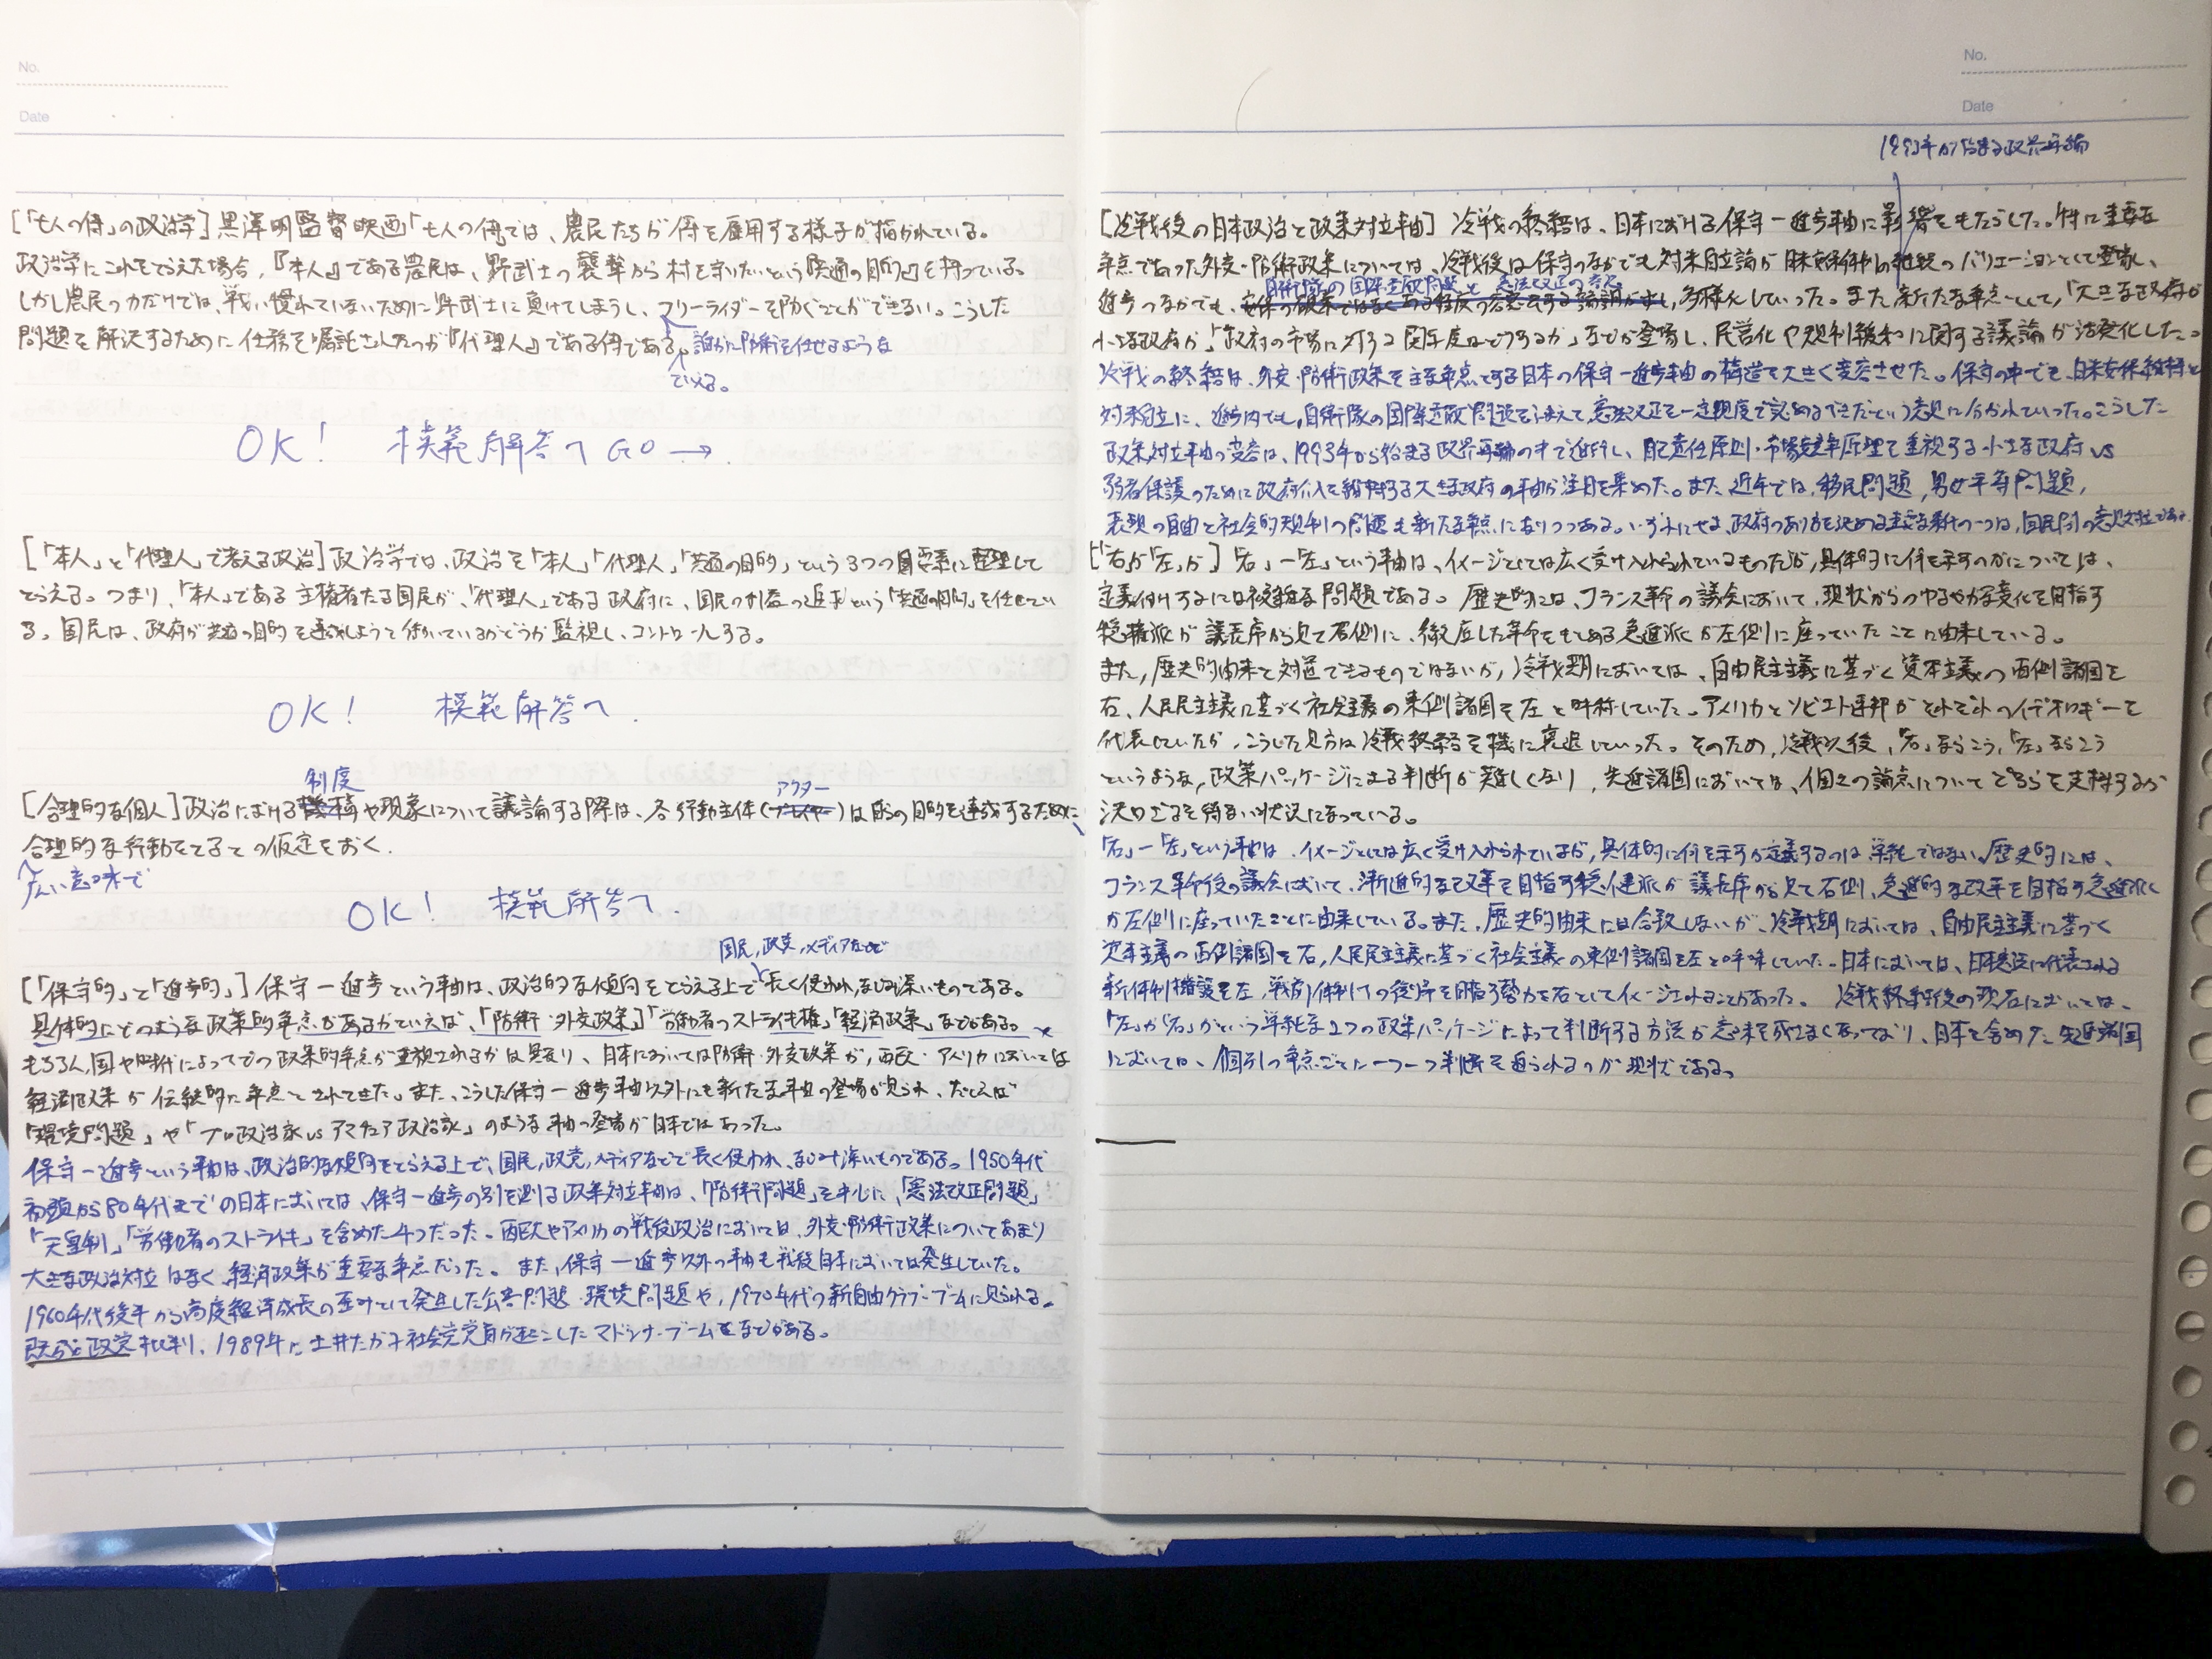 No.
Date
[「七人の侍」の政治学] 黒澤明監督映画「七人の侍」では、農民たちが侍を雇用する様子が描かれている。
政治学にこれをとらえた場合、『「本人」』である農民は、野武士の襲撃から村を守りたいという「共通の目的」を持っている。
しかし農民の力だけでは、戦い慣れていないために野武士に負けてしまうし、フリーライダーを防ぐことができない。こうした
問題を解決するために任務を嘱託されたのが『「代理人」』である侍である。誰かに防衛を任せるような
でいえる。
OK! 模範解答へGO→.
[「本人」と「代理人」で考える政治] 政治学では、政治を「本人」「代理人」「共通の目的」という3つの要素に整理して
とらえる。つまり、「本人」である主権者たる国民が、「代理人」である政府に、国民の利益の追求という「共通の目的」を任せてい
る。国民は、政府が共通の目的を達成しようと働いているかどうか監視し、コントロールする。
OK! 模範解答へ.
制度 アクター
[合理的な個人] 政治における機構や現象について議論する際は、各行動主体(プレイヤー)は自らの目的を達成するために、
合理的な行動をとるとの仮定をおく.
広い意味で
OK! 模範解答へ.
国民,政党,メディアなどで
[「保守的」と「進歩的」] 保守ー進歩という軸は、政治的な傾向をとらえる上で長く使われ、なじみ深いものである。
具体的にどのような政策的争点があるかといえば、「防衛・外交政策」「労働者のストライキ権」「経済政策」などがある。
もちろん、国や時代によってどの政策的争点が重視されるかは異なり、日本においては防衛・外交政策が、西欧・アメリカにおいては
経済政策が伝統的に争点とされてきた。また、こうした保守ー進歩軸以外にも新たな軸の登場が見られ、たとえば
「環境問題」や「プロ政治家vsアマチュア政治家」のような軸の登場が日本ではあった。
保守ー進歩という軸は、政治的な傾向をとらえる上で、国民,政党,メディアなどで長く使われ、なじみ深いものである。1950年代
初頭から80年代までの日本においては、保守ー進歩の別を測る政策対立軸は、「防衛問題」を中心に、「憲法改正問題」
「天皇制」「労働者のストライキ」を含めた4つだった。西欧やアメリカの戦後政治においては、外交・防衛政策についてあまり
大きな政治対立はなく、経済政策が重要な争点だった。また、保守ー進歩以外の軸も戦後日本においては発生していた。
1960年代後半から高度経済成長の歪みとして発生した公害問題・環境問題や、1970年代の新自由クラブ・ブームに見られる
既成政党批判、1989年に土井たか子社会党党首が起こしたマドンナ・ブームなどがある。
No.
Date
1993年から始まる政界再編
[冷戦後の日本政治と政策対立軸] 冷戦の終結は、日本における保守ー進歩軸に影響をもたらした。特に重要な
争点であった外交・防衛政策については、冷戦後は保守のなかでも対米自立論が日米安保体制の継続のバリエーションとして登場、
自衛隊の国際貢献問題と憲法改正の容認
進歩のなかでも、多様化していった。また新たな争点として、「大きな政府か
小さな政府か」「政府の市場に対する関与度はどうするか」などが登場し、民営化や規制緩和に関する議論が活発化した。
冷戦の終結は、外交・防衛政策を主な争点とする日本の保守ー進歩軸の構造を大きく変容させた。保守の中でも、日米安保維持と
対米自立に、進歩内でも、自衛隊の国際貢献問題を迎えて、憲法改正を一定程度で認めるべきだという意見に分かれていった。こうした
政策対立軸の変容は、1993年から始まる政界再編の中で進行し、自己責任原則・市場競争原理を重視する小さな政府vs
弱者保護のために政府介入を維持する大きな政府の軸が注目を集めた。また近年では、移民問題,男女平等問題,
表現の自由と社会的規制の問題も新たな争点になりつつある。いずれにせよ、政府のあり方を決める重要な要素の一つは、国民間の意見対立である。
[「右」か「左」か] 「右」ー「左」という軸は、イメージとしては広く受け入れられているものだが、具体的に何を示すのかについては、
定義付けするには複雑な問題である。歴史的には、フランス革命の議会において、現状からのゆるやかな変化を目指す
穏健派が議長席から見て右側に、徹底した革命をもとめる急進派が左側に座っていたことに由来している。
また、歴史的由来と対応できるものではないが、冷戦期においては、自由民主主義に基づく資本主義の西側諸国を
右、人民民主主義に基づく社会主義の東側諸国を左と呼称していた。アメリカとソビエト連邦がそれぞれのイデオロギーを
代表していたが、こうした見方は冷戦終結を機に衰退していった。そのため、冷戦以後、「右」ならこう,「左」ならこう
というような、政策パッケージによる判断が難しくなり、先進諸国においては、個々の論点についてどちらを支持するか
決めざるを得ない状況になっている。
「右」ー「左」という軸は、イメージとしては広く受け入れられているが、具体的に何を示すか定義するのは単純ではない。歴史的には、
フランス革命後の議会において、漸進的な改革を目指す穏健派が議長席から見て右側、急進的な改革を目指す急進派
が左側に座っていたことに由来している。また、歴史的由来には合致しないが、冷戦期においては、自由民主主義に基づく
資本主義の西側諸国を右,人民民主主義に基づく社会主義の東側諸国を左と呼称していた。日本においては、日本国憲法に代表される
新体制擁護を左,戦前体制への復帰を目指す勢力を右としてイメージされることがあった。冷戦終結後の現在においては、
「左」か「右」かという単純な2つの政策パッケージによって判断する方法が意味を成さなくなっており、日本を含めた先進諸国
においては、個別の争点ごとに一つ一つ判断を迫られるのが現状である。